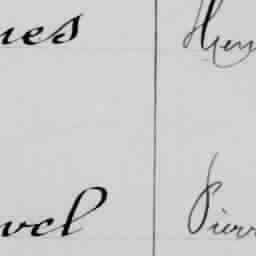 nes Hen
vel Pierr